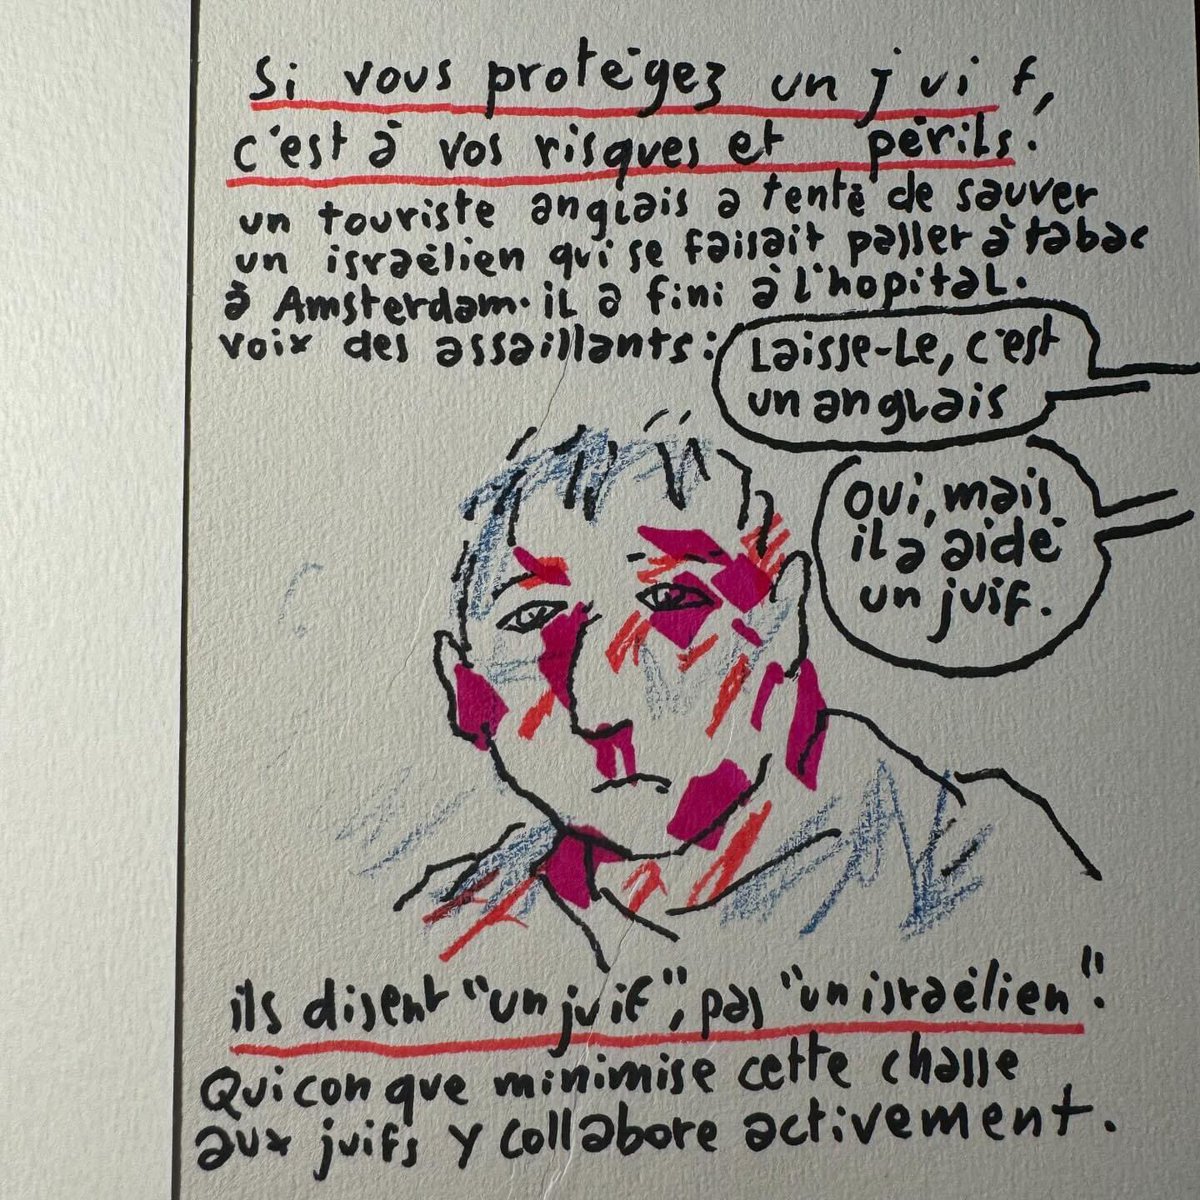 Si vous protégez un juif,
c'est à vos risques et périls.
un touriste anglais a tenté de sauver
un israélien qui se faisait passer à tabac
à Amsterdam. il a fini à l'hopital.
voix des assaillants :
Laisse-Le, c'est
un anglais
oui, mais
il a aidé
un juif.
ils disent "un juif", pas "un israélien".
Quiconque minimise cette chasse
aux juifs y collabore activement.